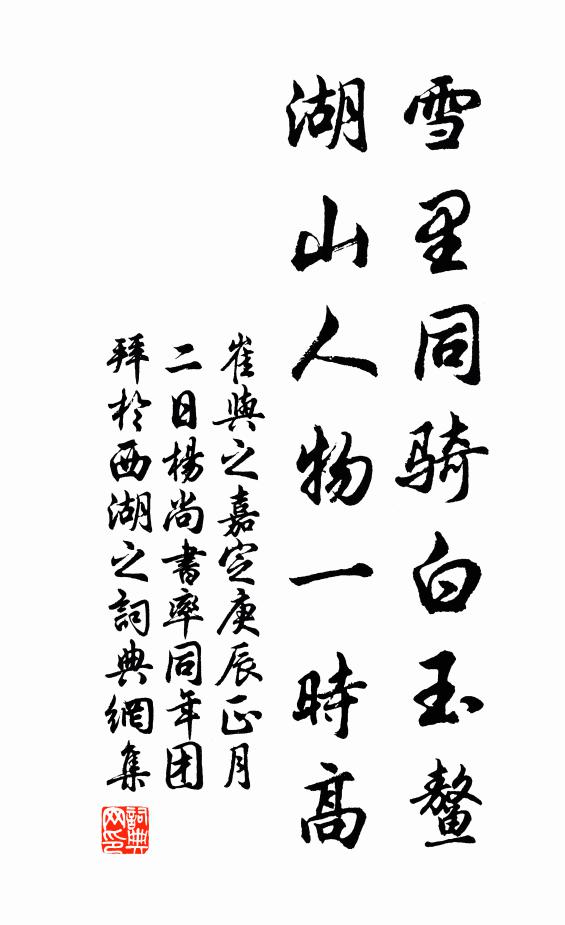 雪里同骑白玉鳌
湖山人物一時高
崔與之嘉定庚辰正月
二日楊尚書率同年团
拜於西湖之詞典網集
詞典
网印